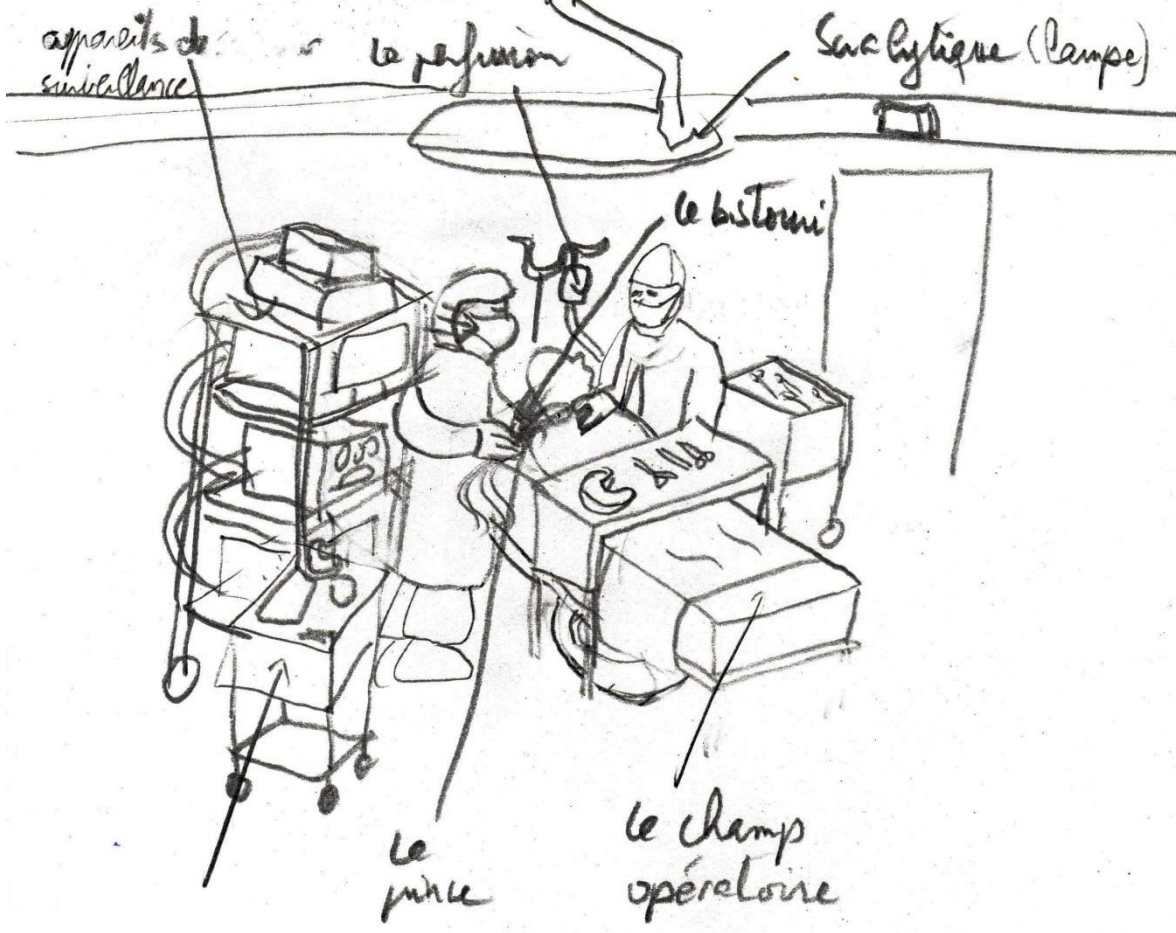 appareils de
surveillance
la perfusion
Scialytique (lampe)
le bistouri
le champ
opératoire
le
pince